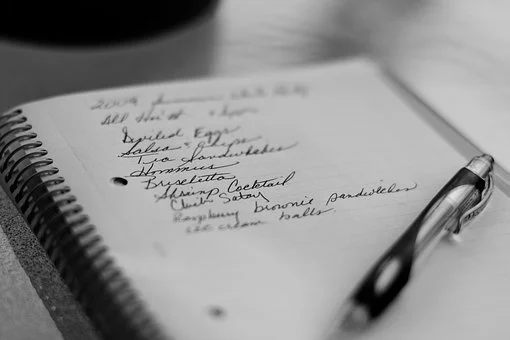 2009 Summer
All Hint
Deviled Eggs
Salsa & Chips
Tea Sandwiches
Hommus
Bruschetta
Shrimp Cocktail
Chick Satay
Raspberry brownie sandwiches
ice cream balls.